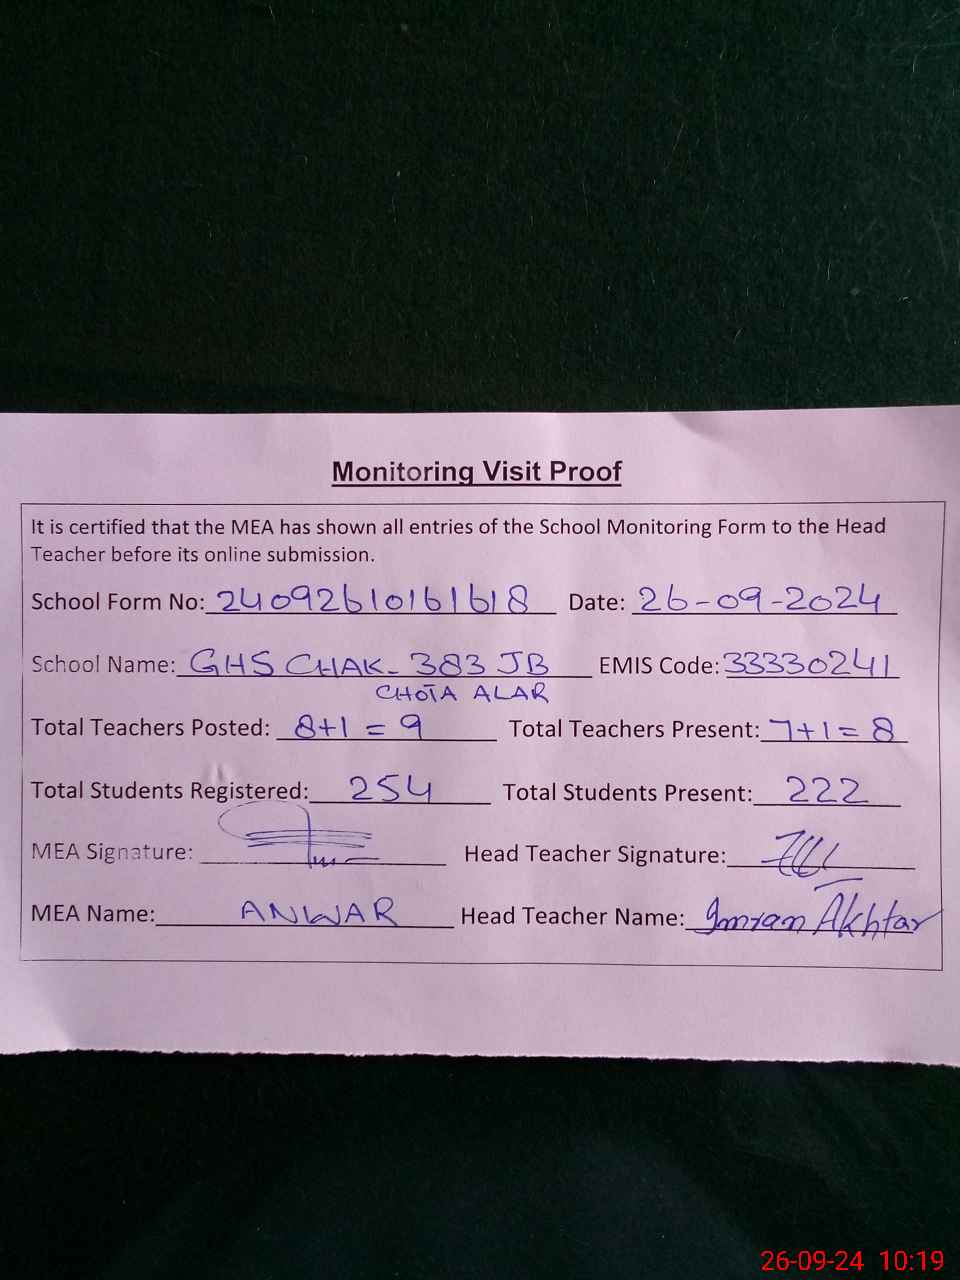 Monitoring Visit Proof
It is certified that the MEA has shown all entries of the School Monitoring Form to the Head
Teacher before its online submission.
School Form No: 24092610161618 Date: 26-09-2024
School Name: GHS CHAK- 383 JB EMIS Code: 33330241
CHOTA ALAR
Total Teachers Posted: 8+1 = 9 Total Teachers Present: 7+1 = 8
Total Students Registered: 254 Total Students Present: 222
MEA Signature: Head Teacher Signature:
MEA Name: ANWAR Head Teacher Name: Imran Akhtar
26-09-24 10:19